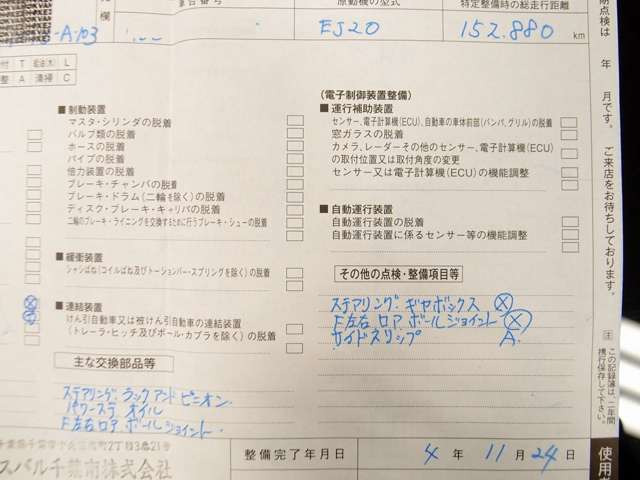 欄
車台番号
原動機の型式
特定整備時の総走行距離
-A-103
EJ20
152.880
km
T
給油(水)
L
A
清掃
C
期点検は　年　月です。ご来店をお待ちしております。
■制動装置
マスタ・シリンダの脱着
バルブ類の脱着
ホースの脱着
パイプの脱着
倍力装置の脱着
ブレーキ・チャンバの脱着
ブレーキ・ドラム(二輪を除く)の脱着
ディスク・ブレーキ・キャリパの脱着
二輪のブレーキ・ライニングを交換するために行うブレーキ・シューの脱着
■緩衝装置
シャシばね(コイルばね及びトーションバー・スプリングを除く)の脱着
■連結装置
けん引自動車又は被けん引自動車の連結装置
(トレーラ・ヒッチ及びボール・カプラを除く)の脱着
主な交換部品等
ステアリング ラックアンドピニオン
パワーステ オイル
F左右ロア ボールジョイント
(電子制御装置整備)
■運行補助装置
センサー、電子計算機(ECU)、自動車の車体前部(バンパ、グリル)の脱着
窓ガラスの脱着
カメラ、レーダーその他のセンサー、電子計算機(ECU)
の取付位置又は取付角度の変更
センサー又は電子計算機(ECU)の機能調整
■自動運行装置
自動運行装置の脱着
自動運行装置に係るセンサー等の機能調整
その他の点検・整備項目等
ステアリング ギヤボックス ⓧ
F左右ロア ボールジョイント ⓧ
サイドスリップ A
注
この記録簿は、二年間
携行保存して下さい。
2丁目13番21号
スバル千葉南株式会社
整備完了年月日
4 年 11 月 24 日
使用者